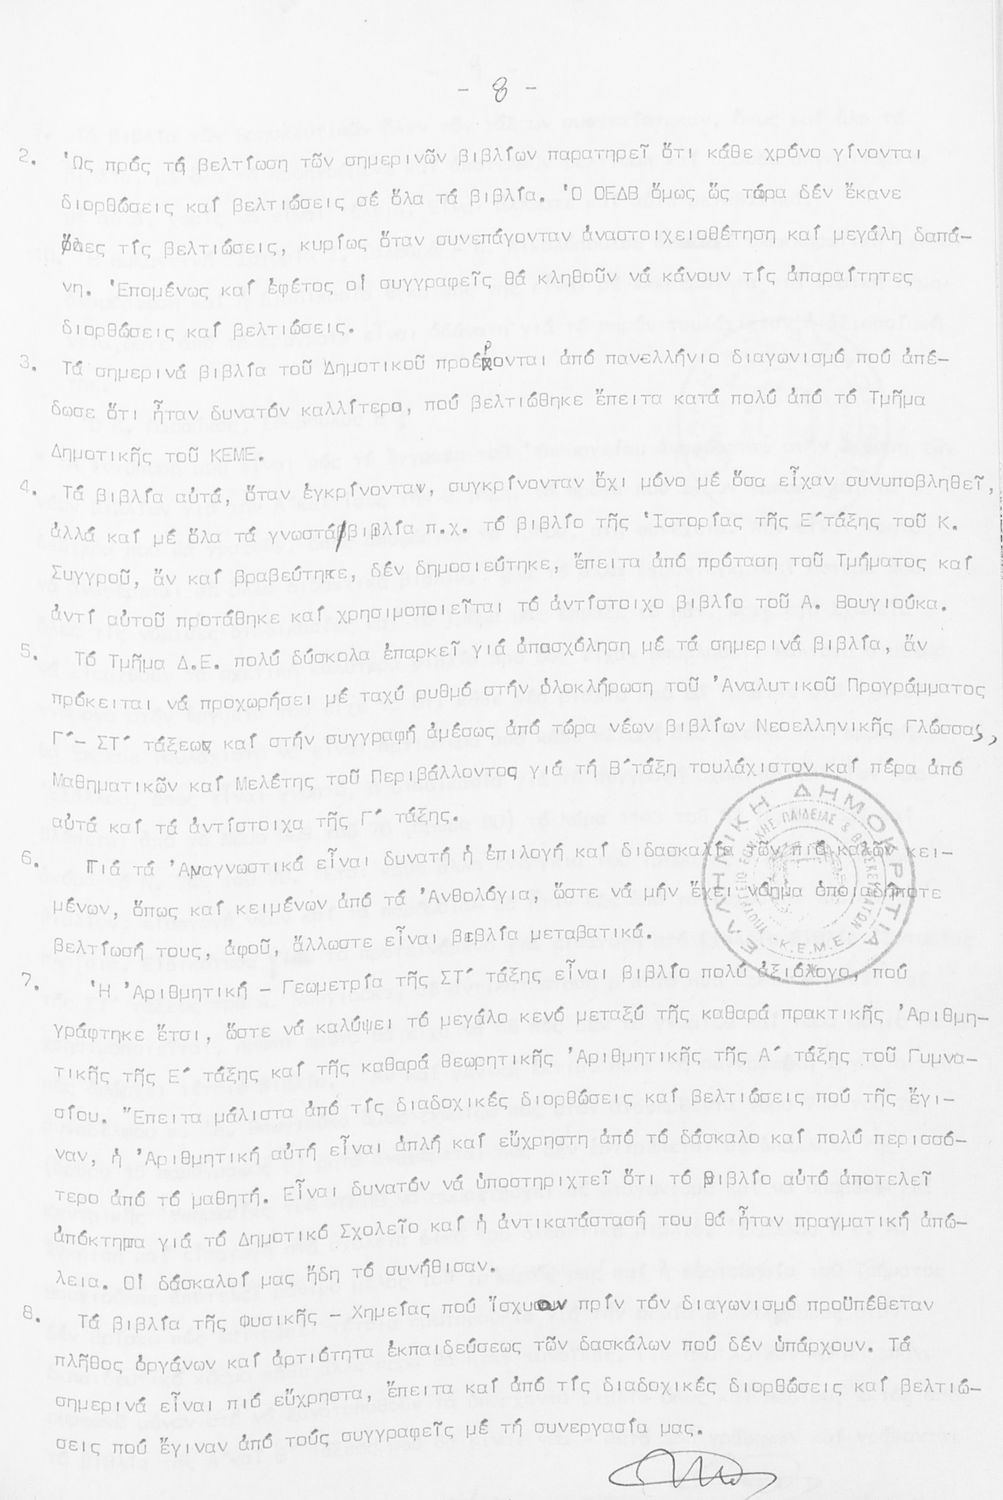 - 8 -
2. Ὡς πρός τή βελτίωση τῶν σημερινῶν βιβλίων παρατηρεῖ ὅτι κάθε χρόνο γίνονται
διορθώσεις καί βελτιώσεις σέ ὅλα τά βιβλία. Ὁ ΟΕΔΒ ὅμως ὥς τώρα δέν ἔκανε
ὅλες τίς βελτιώσεις, κυρίως ὅταν συνεπάγονταν ἀναστοιχειοθέτηση καί μεγάλη δαπά-
νη. Ἑπομένως καί ἐφέτος οἱ συγγραφεῖς θά κληθοῦν νά κάνουν τίς ἀπαραίτητες
διορθώσεις καί βελτιώσεις.
3. Τά σημερινά βιβλία τοῦ Δημοτικοῦ προέρχονται ἀπό πανελλήνιο διαγωνισμό πού ἀπέ-
δωσε ὅτι ἦταν δυνατόν καλλίτερο, πού βελτιώθηκε ἔπειτα κατά πολύ ἀπό τό Τμῆμα
Δημοτικῆς τοῦ ΚΕΜΕ.
4. Τά βιβλία αὐτά, ὅταν ἐγκρίνονταν, συγκρίνονταν ὄχι μόνο μέ ὅσα εἶχαν συνυποβληθεῖ,
ἀλλά καί μέ ὅλα τά γνωστά βιβλία π.χ. τό βιβλίο τῆς Ἱστορίας τῆς Ε΄τάξης τοῦ Κ.
Συγγροῦ, ἄν καί βραβεύτηκε, δέν δημοσιεύτηκε, ἔπειτα ἀπό πρόταση τοῦ Τμήματος καί
ἀντί αὐτοῦ προτάθηκε καί χρησιμοποιεῖται τό ἀντίστοιχο βιβλίο τοῦ Α. Βουγιούκα.
5. Τό Τμῆμα Δ.Ε. πολύ δύσκολα ἐπαρκεῖ γιά ἀπασχόληση μέ τά σημερινά βιβλία, ἄν
πρόκειται νά προχωρήσει μέ ταχύ ρυθμό στήν ὁλοκλήρωση τοῦ Ἀναλυτικοῦ Προγράμματος
Γ΄- ΣΤ΄ τάξεως καί στήν συγγραφή ἀμέσως ἀπό τώρα νέων βιβλίων Νεοελληνικῆς Γλώσσας,
Μαθηματικῶν καί Μελέτης τοῦ Περιβάλλοντος γιά τή Β΄τάξη τουλάχιστον καί πέρα ἀπό
αὐτά καί τά ἀντίστοιχα τῆς Γ΄ τάξης.
6. Γιά τά Ἀναγνωστικά εἶναι δυνατή ἡ ἐπιλογή καί διδασκαλία τῶν πιό καλῶν κει-
μένων, ὅπως καί κειμένων ἀπό τά Ἀνθολόγια, ὥστε νά μήν ἔχει νόημα ὁποιαδήποτε
βελτίωσή τους, ἀφοῦ, ἄλλωστε εἶναι βιβλία μεταβατικά.
ΕΛΛΗΝΙΚΗ ΔΗΜΟΚΡΑΤΙΑ
ΥΠΟΥΡΓΕΙΟ ΕΘΝΙΚΗΣ ΠΑΙΔΕΙΑΣ & ΘΡΗΣΚΕΥΜΑΤΩΝ
Κ.Ε.Μ.Ε.
7. Ἡ Ἀριθμητική - Γεωμετρία τῆς ΣΤ΄ τάξης εἶναι βιβλίο πολύ ἀξιόλογο, πού
γράφτηκε ἔτσι, ὥστε νά καλύψει τό μεγάλο κενό μεταξύ τῆς καθαρά πρακτικῆς Ἀριθμη-
τικῆς τῆς Ε΄ τάξης καί τῆς καθαρά θεωρητικῆς Ἀριθμητικῆς τῆς Α΄ τάξης τοῦ Γυμνα-
σίου. Ἔπειτα μάλιστα ἀπό τίς διαδοχικές διορθώσεις καί βελτιώσεις πού τῆς ἔγι-
ναν, ἡ Ἀριθμητική αὐτή εἶναι ἁπλή καί εὔχρηστη ἀπό τό δάσκαλο καί πολύ περισσό-
τερο ἀπό τό μαθητή. Εἶναι δυνατόν νά ὑποστηριχτεῖ ὅτι τό βιβλίο αὐτό ἀποτελεῖ
ἀπόκτημα γιά τό Δημοτικό Σχολεῖο καί ἡ ἀντικατάστασή του θά ἦταν πραγματική ἀπώ-
λεια. Οἱ δάσκαλοί μας ἤδη τό συνήθισαν.
8. Τά βιβλία τῆς Φυσικῆς - Χημείας πού ἴσχυαν πρίν τόν διαγωνισμό προϋπέθεταν
πλῆθος ὀργάνων καί ἀρτιότητα ἐκπαιδεύσεως τῶν δασκάλων πού δέν ὑπάρχουν. Τά
σημερινά εἶναι πιό εὔχρηστα, ἔπειτα καί ἀπό τίς διαδοχικές διορθώσεις καί βελτιώ-
σεις πού ἔγιναν ἀπό τούς συγγραφεῖς μέ τή συνεργασία μας.